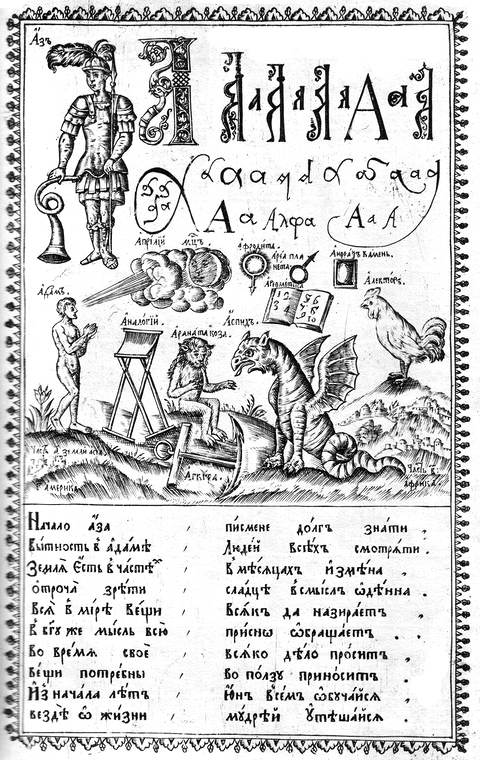 А҆зъ
А А А А А А А
А а Алфа А а А
Априлїй мц҃ъ.
Афродита.
Арїа планета
Анѳраѯъ камень.
Ариѳметїка
1 2 3 5 6 7 8 9 10
Алекторъ.
Адамъ.
Аналогїй.
Аспидъ.
Часть а҃ земли
Америка.
Часть в҃
Африка.
Начало а҆за , писмене долгъ знати ,
Бытность в адамѣ , Людей всѣхъ смотряти .
Земля Єсть в частѣ , В мѣсяцахъ измѣна ,
отроча зрѣти , сладцѣ в смыслъ ѡдѣнна .
Вся в мірѣ вещи , Всякъ да назираетъ ,
В бг҃у же мысль всю , присно ѡбращаетъ .
Во время своє , всяко дѣло проситъ ,
вещи потребны , во ползу приноситъ .
И҆з начала лѣтъ , Юнъ всѣмъ ѡбучайся ,
вездѣ ѡ жизни , мудрѣй ᲂутѣшайся .